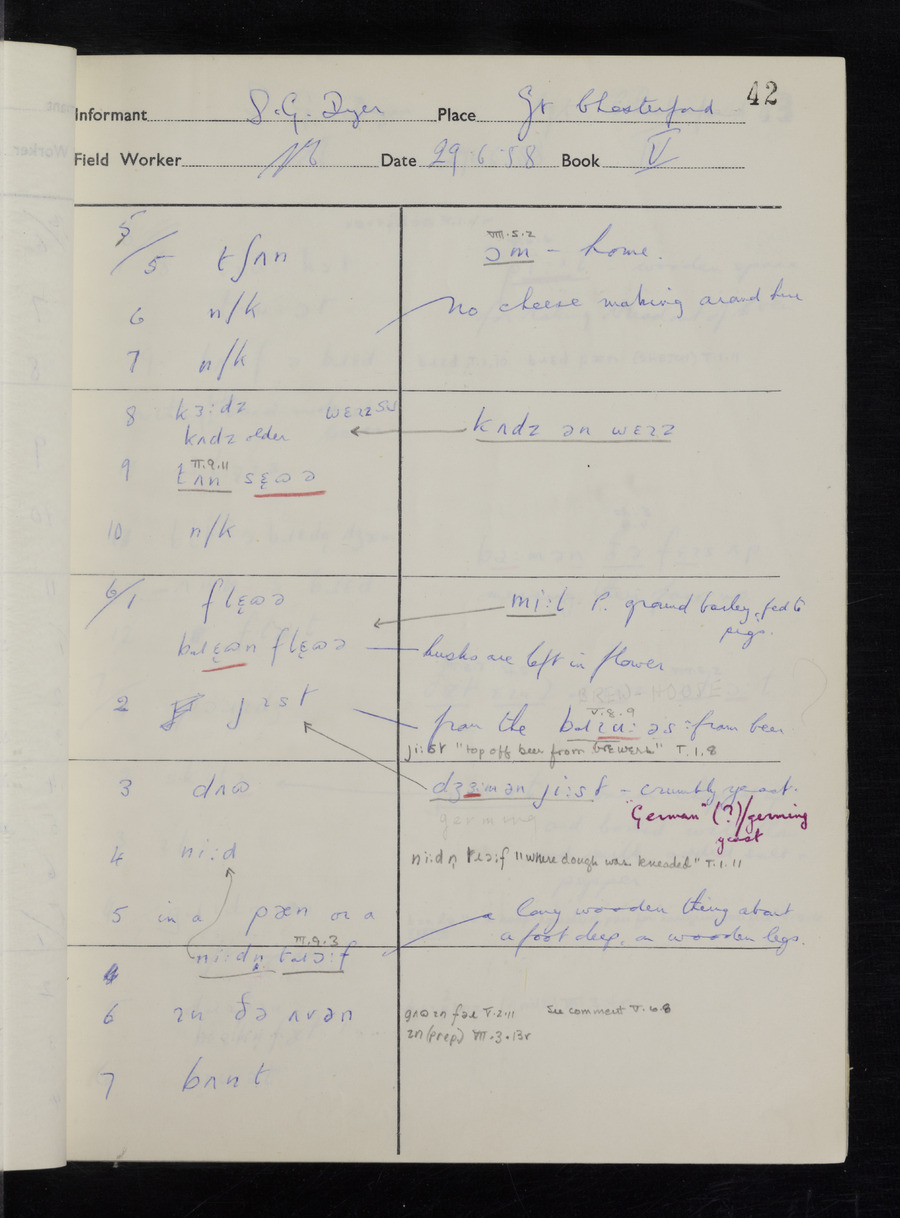 42
Informant S.G. Dyer Place Gt Chesterford
Field Worker Date 29.6.58 Book V
5/5 tʃʌn
VIII.5.2
ɔm – home.
6 n/k
No cheese making around here
7 n/k
8 kɜ:dz
kʌdz older
kʌdz ən
9 II.9.11
tʌn sɛ̨ɷə
10 n/k
6/1 flɛ̨ɷə
mi:l P. ground barley, fed to pigs.
flɛ̨ɷə
husks are left in flower
2 jɪst
V.8.9
from the : from beer
ji:st "top off beer from brewers" V.1.8
3 dʌɷ
ji:st – crumbly yeast.
"German" (?)/germing
yeast
4 ni:d
ni:dn̩ "where dough was kneaded" V.1.11
5 in a pæn or a
a long wooden thing about
a foot deep, on wooden legs.
III.9.3
ni:dn̩
6 ɪn ðə ʌvən
V.2.11 See comment V.6.8
ɪn (prep)
7 bʌnt